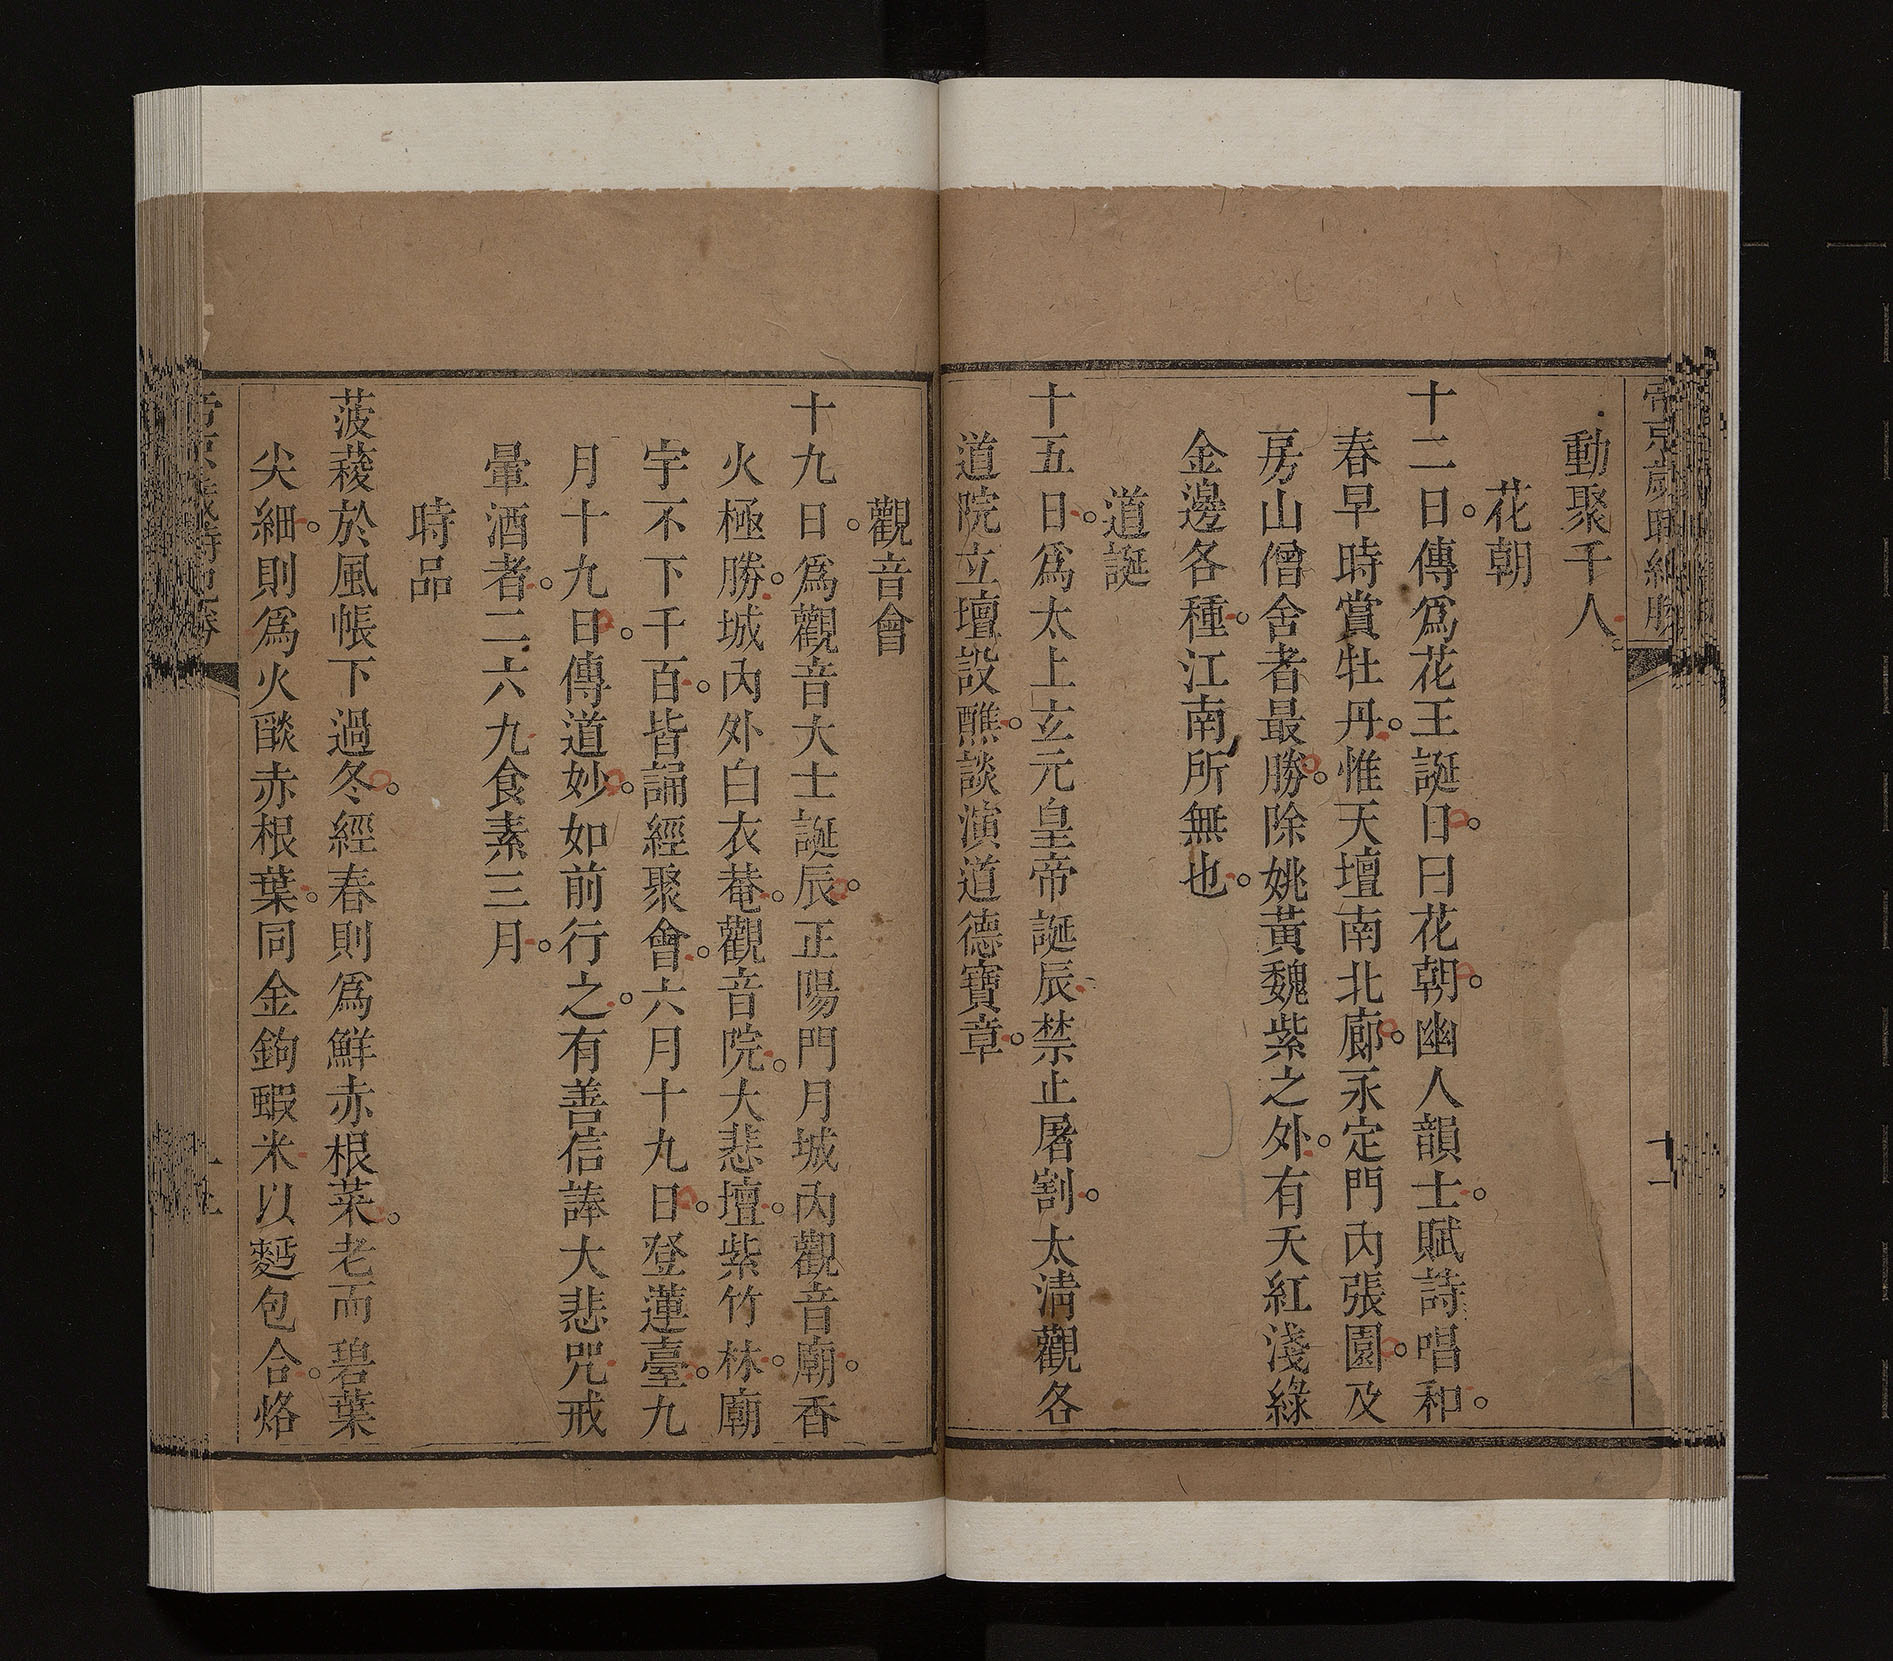 動聚千人
花朝
十二日。傳爲花王誕日。曰花朝。幽人韻士。賦詩唱和。
春早時賞牡丹。惟天壇南北廊。永定門內張園。及
房山僧舍者最勝。除姚黃魏紫之外。有天紅淺綠
金邊各種。江南所無也。
道誕
十五日。爲太上玄元皇帝誕辰禁止屠割。太淸觀各
道院立壇設醮。談演道德寶章。
觀音會
十九日。爲觀音大士誕辰。正陽門月城內觀音廟。香
火極勝。城內外白衣菴。觀音院。大悲壇。紫竹林。廟
宇不下千百。皆誦經聚會。六月十九日。登蓮臺。九
月十九日。傳道妙。如前行之。有善信諱大悲咒戒
暈酒者。二六九食素三月。
時品
菠薐於風帳下過冬。經春則爲鮮赤根菜。老而碧葉
尖細。則爲火燄赤根葉。同金鉤蝦米以麪包合。烙